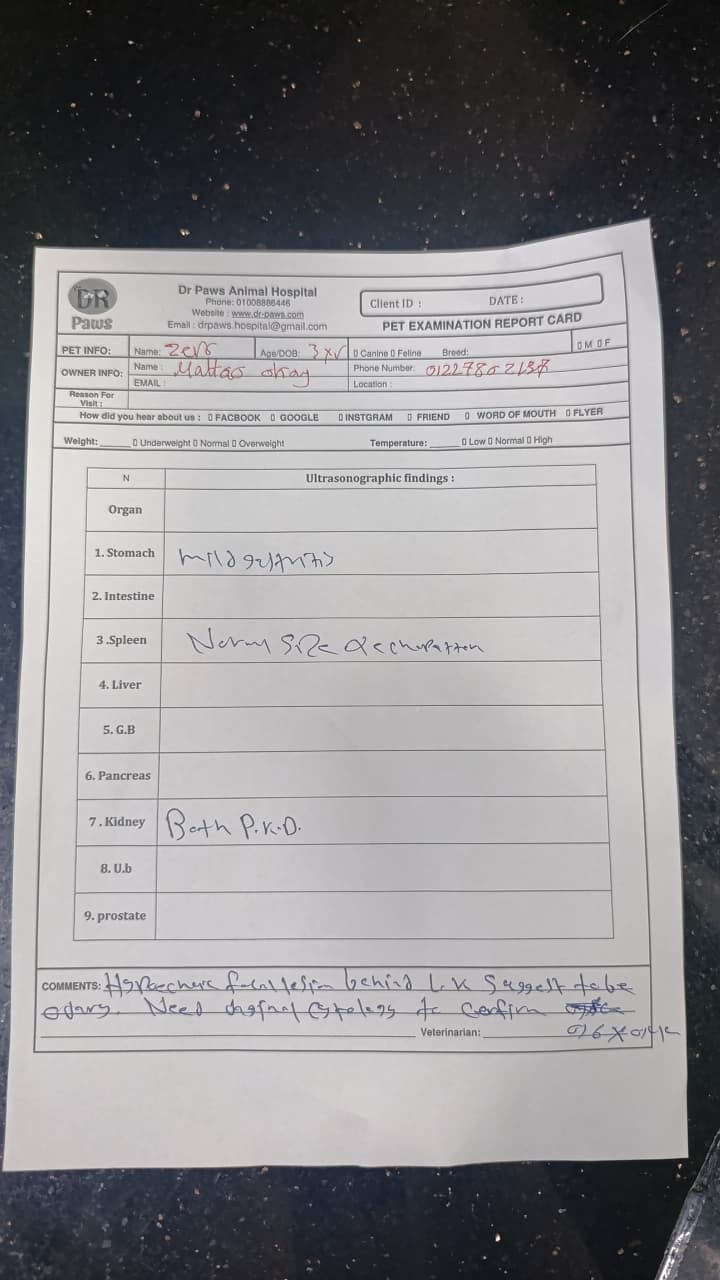 DR
Paws
Dr Paws Animal Hospital
Phone: 01008886446
Website : www.dr-paws.com
Email : drpaws.hospital@gmail.com
Client ID : DATE :
PET EXAMINATION REPORT CARD
PET INFO: Name: Age/DOB: ▯ Canine ▯ Feline Breed: ▯ M ▯ F
OWNER INFO: Name : Phone Number:
EMAIL : Location :
Reason For
Visit :
How did you hear about us : ▯ FACBOOK ▯ GOOGLE ▯ INSTGRAM ▯ FRIEND ▯ WORD OF MOUTH ▯ FLYER
Weight: ______ ▯ Underweight ▯ Normal ▯ Overweight Temperature: ______ ▯ Low ▯ Normal ▯ High
N Ultrasonographic findings :
Organ
1. Stomach mild gastritis
2. Intestine
3 .Spleen Size &
4. Liver
5. G.B
6. Pancreas
7 . Kidney Both P.K.D.
8. U.b
9. prostate
COMMENTS: behind L.K suggest to be
Need to confirm
Veterinarian: